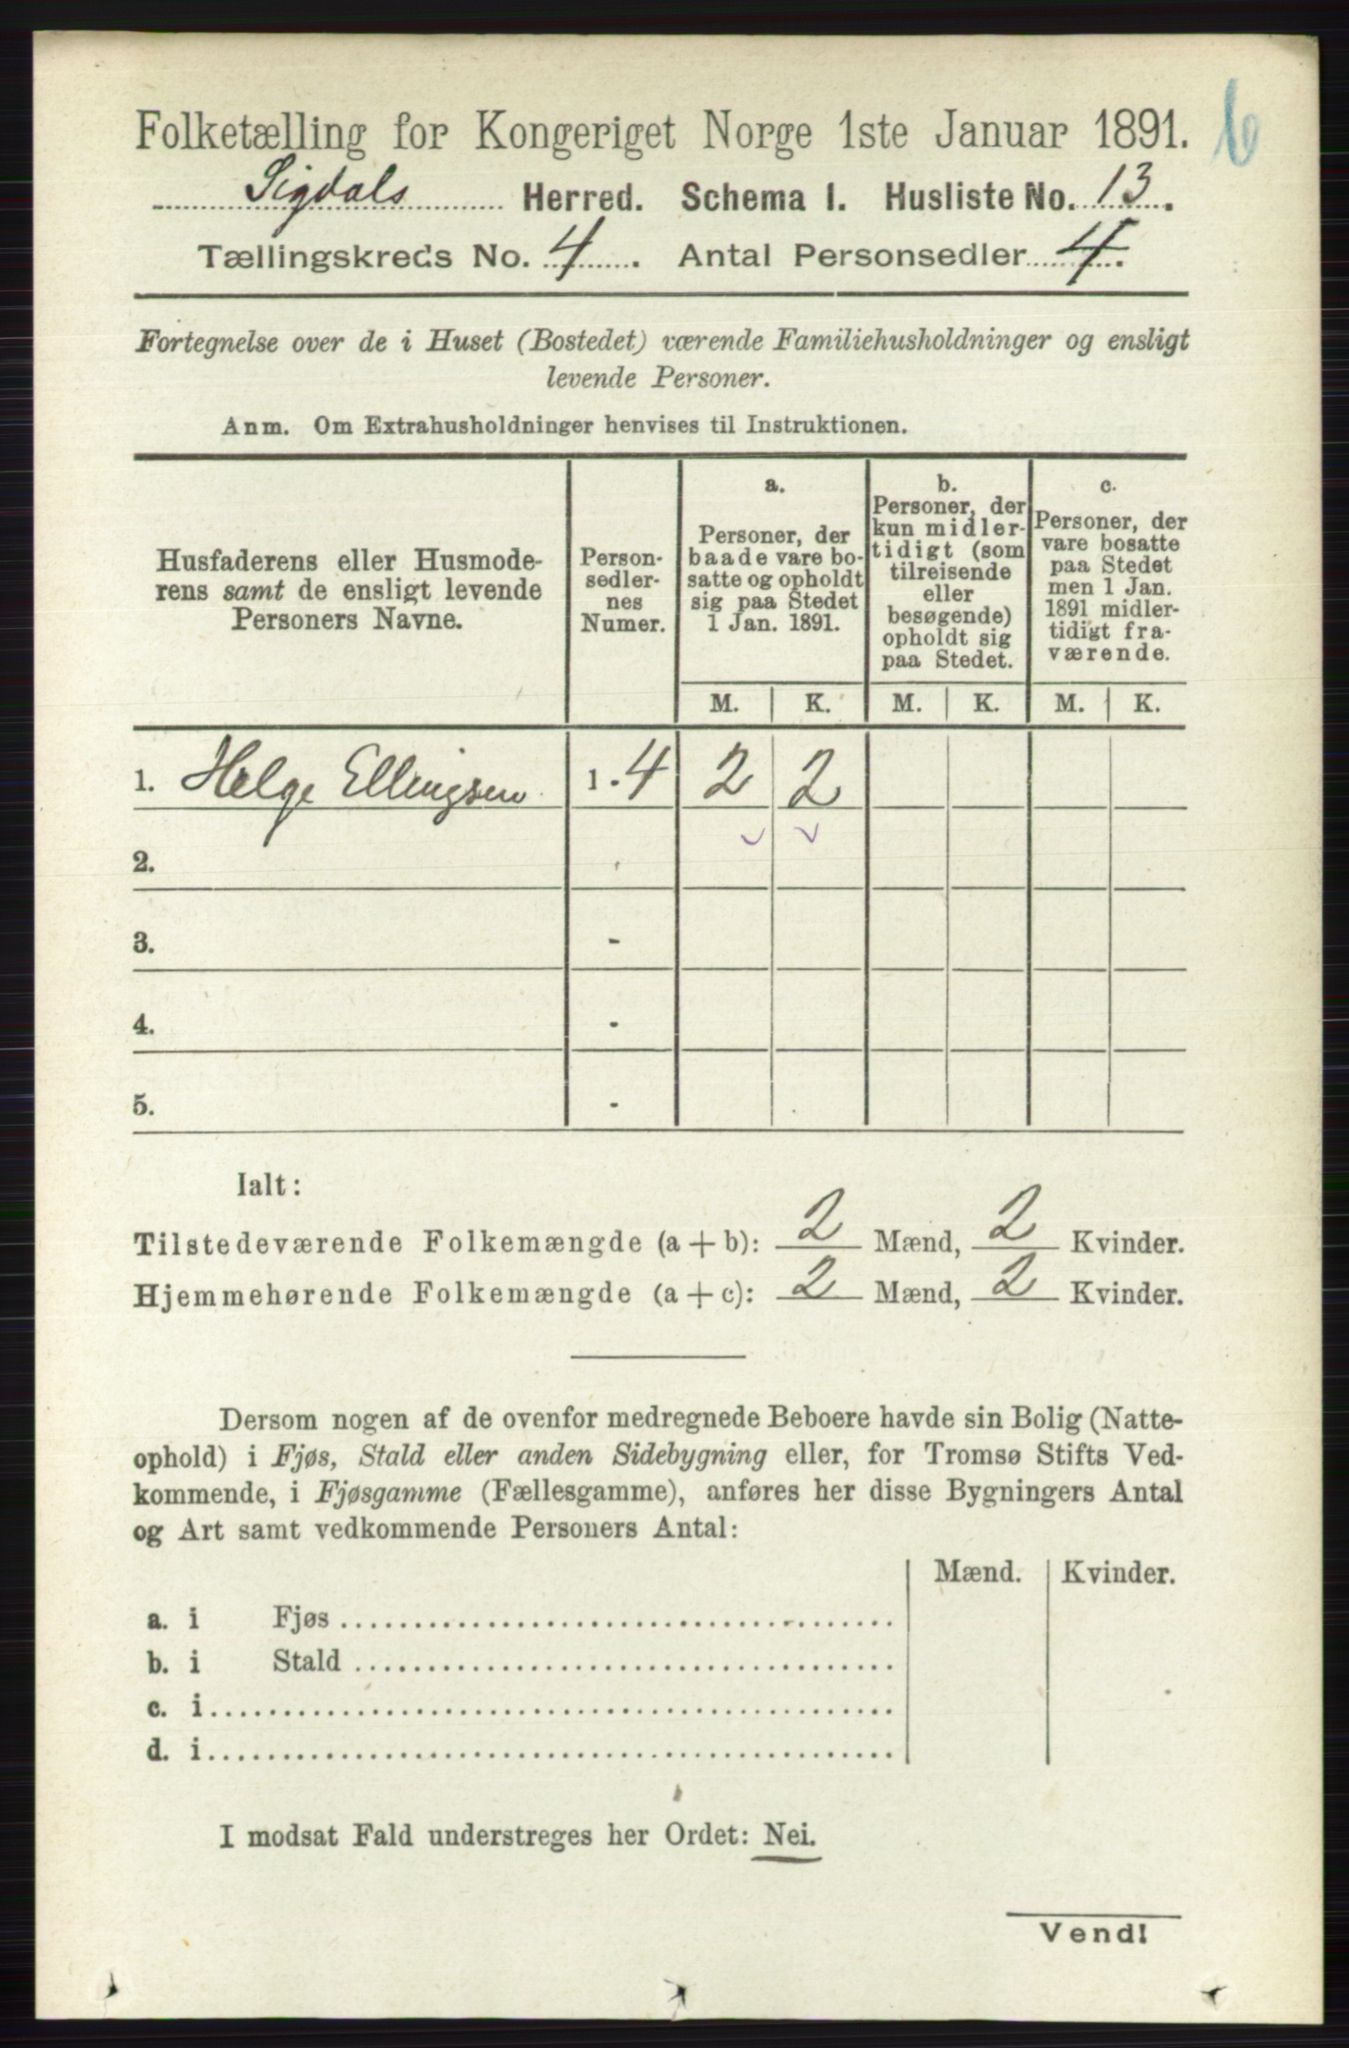 6
Folketælling for Kongeriget Norge 1ste Januar 1891.
Sigdals Herred. Schema I. Husliste No. 13.
Tællingskreds No. 4. Antal Personsedler 4.
Fortegnelse over de i Huset (Bostedet) værende Familiehusholdninger og ensligt
levende Personer.
Anm. Om Extrahusholdninger henvises til Instruktionen.
Husfaderens eller Husmode-
rens samt de ensligt levende
Personers Navne.
Person-
sedler-
nes
Numer.
a.
Personer, der
baade vare bo-
satte og opholdt
sig paa Stedet
1 Jan. 1891.
b.
Personer, der
kun midler-
tidigt (som
tilreisende
eller
besøgende)
opholdt sig
paa Stedet.
c.
Personer, der
vare bosatte
paa Stedet
men 1 Jan.
1891 midler-
tidigt fra-
værende.
M. K. M. K. M. K.
1. Helge Ellingsen 1-4 2 2
2.
3. -
4. -
5. -
Ialt:
Tilstedeværende Folkemængde (a+b): 2 Mænd, 2 Kvinder.
Hjemmehørende Folkemængde (a+c): 2 Mænd, 2 Kvinder.
Dersom nogen af de ovenfor medregnede Beboere havde sin Bolig (Natte-
ophold) i Fjøs, Stald eller anden Sidebygning eller, for Tromsø Stifts Ved-
kommende, i Fjøsgamme (Fællesgamme), anføres her disse Bygningers Antal
og Art samt vedkommende Personers Antal:
Mænd. Kvinder.
a. i Fjøs
b. i Stald
c. i
d. i
I modsat Fald understreges her Ordet: Nei.
Vend!